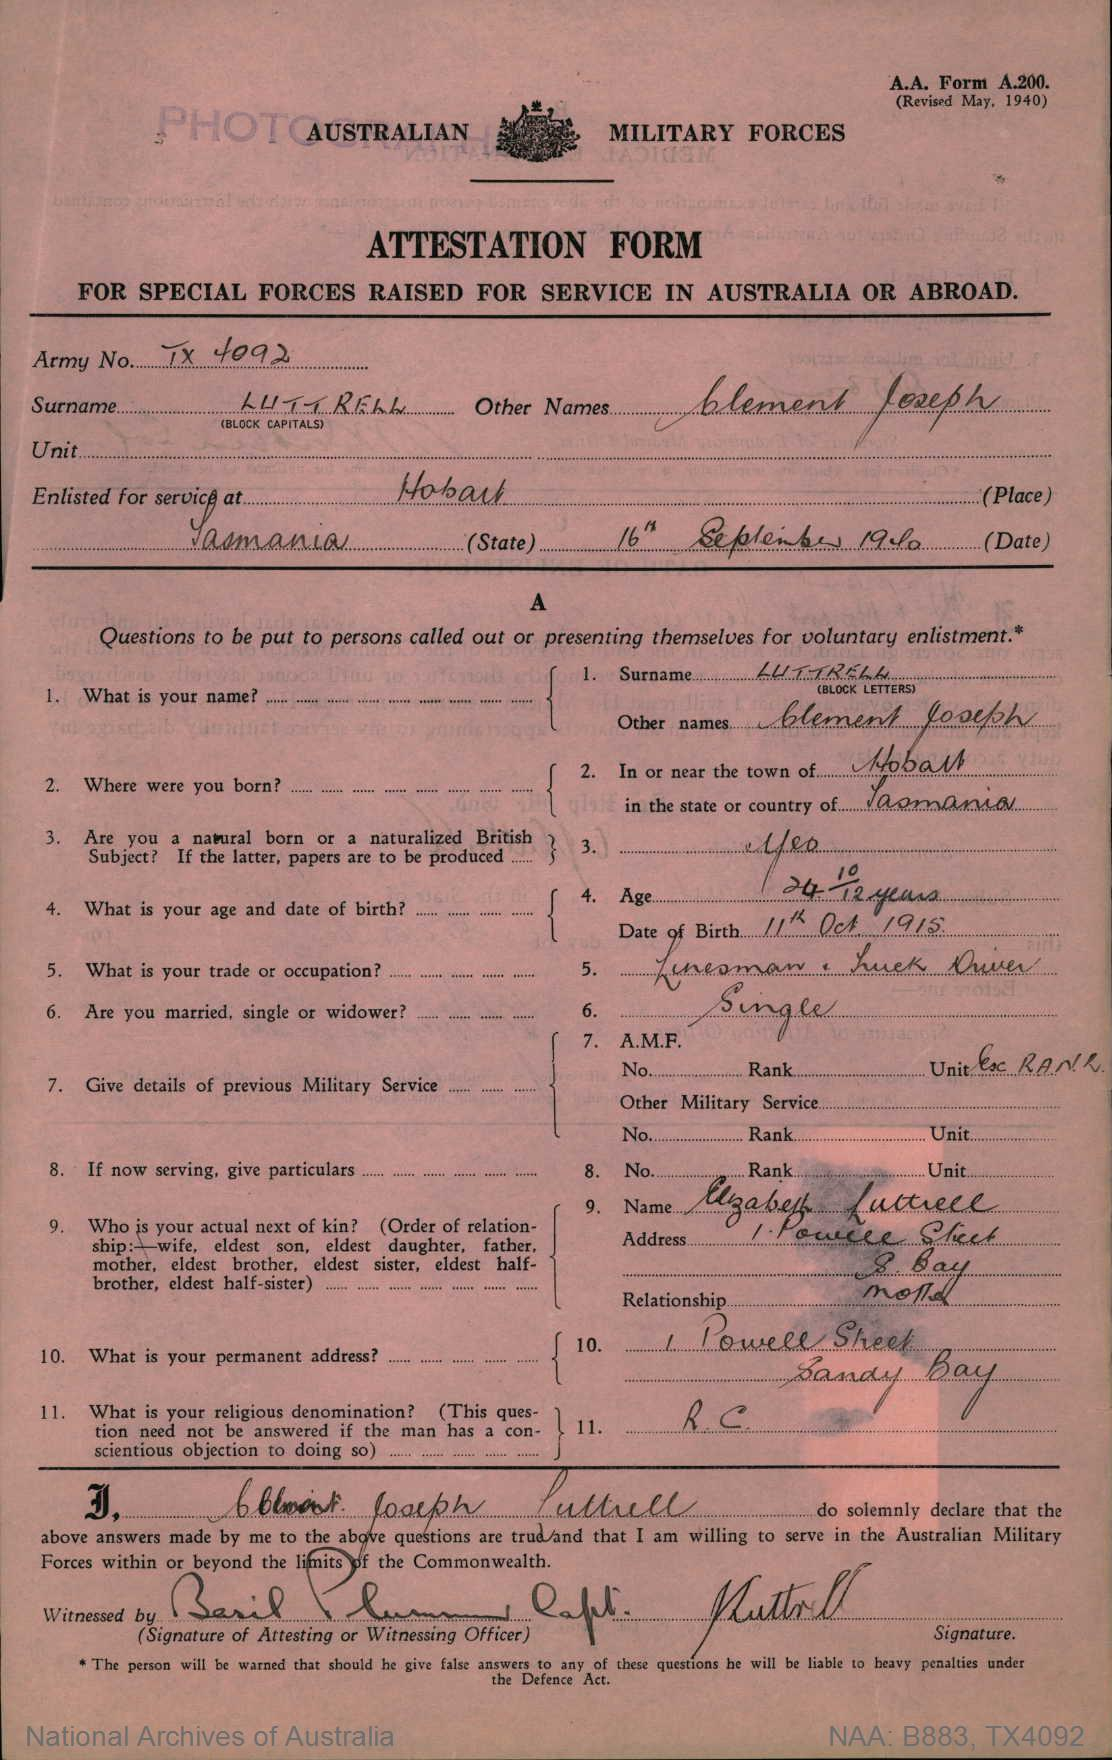 A.A. Form A.200.
(Revised May, 1940)
PHOTOGRAPH
AUSTRALIAN MILITARY FORCES
ATTESTATION FORM
FOR SPECIAL FORCES RAISED FOR SERVICE IN AUSTRALIA OR ABROAD.
Army No. TX 4092
Surname LUTTRELL Other Names Clement Joseph
(BLOCK CAPITALS)
Unit
Enlisted for service at Hobart (Place)
Tasmania (State) 16th September 1940 (Date)
A
Questions to be put to persons called out or presenting themselves for voluntary enlistment.*
1. What is your name? 1. Surname LUTTRELL
(BLOCK LETTERS)
Other names Clement Joseph
2. Where were you born? 2. In or near the town of Hobart
in the state or country of Tasmania
3. Are you a natural born or a naturalized British
Subject? If the latter, papers are to be produced 3. Yes
4. What is your age and date of birth? 4. Age 24 10/12 years
Date of Birth 11th Oct 1915
5. What is your trade or occupation? 5. Linesman & Truck Driver
6. Are you married, single or widower? 6. Single
7. Give details of previous Military Service 7. A.M.F.
No. Rank Unit Ex R.A.N.R.
Other Military Service
No. Rank Unit
8. If now serving, give particulars 8. No. Rank Unit
9. Who is your actual next of kin? (Order of relation-
ship:—wife, eldest son, eldest daughter, father,
mother, eldest brother, eldest sister, eldest half-
brother, eldest half-sister)
9. Name Elizabeth Luttrell
Address 1 Powell Street
S. Bay
Relationship Mother
10. What is your permanent address? 10. 1 Powell Street
Sandy Bay
11. What is your religious denomination? (This ques-
tion need not be answered if the man has a con-
scientious objection to doing so) 11. R.C.
I, Clement Joseph Luttrell do solemnly declare that the
above answers made by me to the above questions are true and that I am willing to serve in the Australian Military
Forces within or beyond the limits of the Commonwealth.
Witnessed by Basil Capt. Luttrell
(Signature of Attesting or Witnessing Officer) Signature.
* The person will be warned that should he give false answers to any of these questions he will be liable to heavy penalties under
the Defence Act.
National Archives of Australia NAA: B883, TX4092